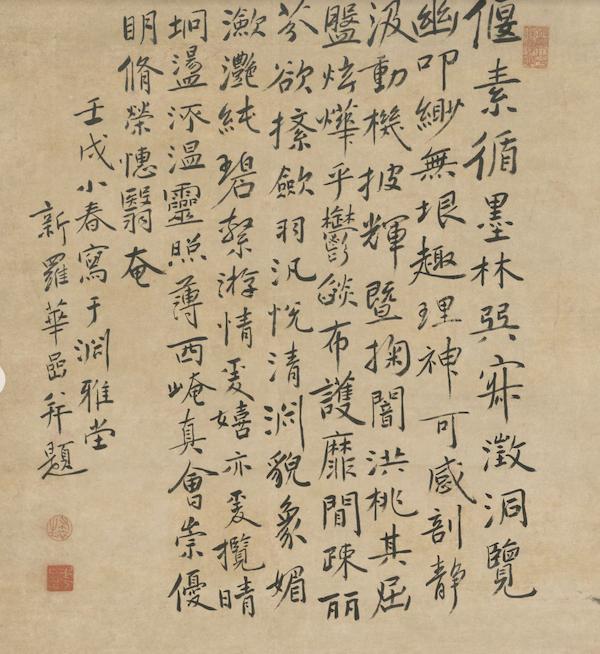 偃素循墨林與寐澂洞覽
幽叩緲無垠趣理神可感剖靜
汲動機披輝暨掬闇洪桃其屈
盤炫燁乎鬱燄布護靡間疎丽
芬欲搽歛羽汎悅清渊貌象媚
漱灧純碧縏游情爰嬉亦爰攬晴
坰盪淴溫靈照薄西崦真會崇優
明脩榮憓翳奄
壬戌小春寫于渊雅堂
新羅華嵒并題